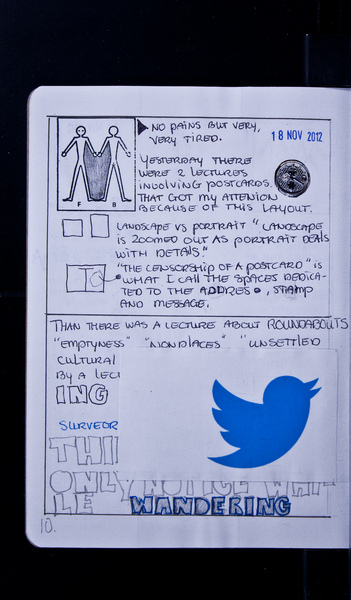 NO PAINS BUT VERY,
VERY TIRED.
18 NOV 2012
YESTERDAY THERE
WERE 2 LECTURES
INVOLVING POSTCARDS.
THAT GOT MY ATTENION
BECAUSE OF THIS LAYOUT.
F B
LANDSCAPE VS PORTRAIT "LANDSCAPE
IS ZOOMED OUT AS PORTRAIT DEALS
WITH DETAILS."
"THE CENSORSHIP OF A POSTCARD" IS
WHAT I CALL THE SPACES DEDICA-
TED TO THE ADDRES, STAMP
AND MESSAGE.
THAN THERE WAS A LECTURE ABOUT ROUNDABOUTS
"EMPTYNESS" "NONPLACES" "UNSETTLED
CULTURAL
BY A LECT
ING
SURVEOR
THI
ONLY NOTICE WH
LE WANDERING
10.